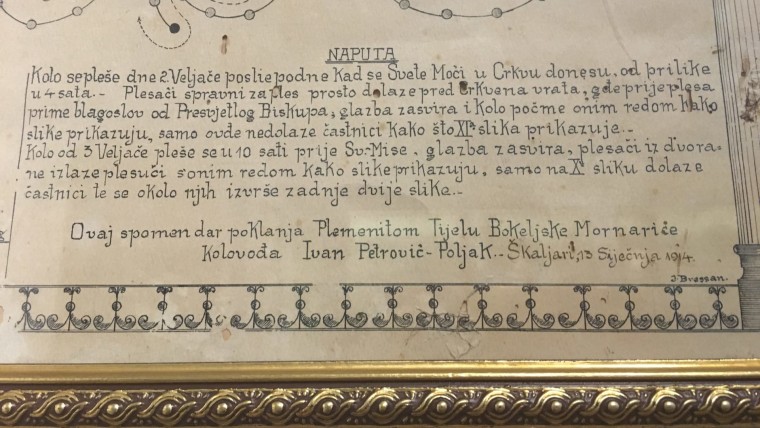 NAPUTA
Kolo se pleše dne 2. Veljače poslie podne kad se Svete Moći u Crkvu donesu, od prilike
u 4 sata.- Plesači spravni za ples prosto dolaze pred Crkvena vrata, gdje prije plesa
prime blagoslov od Presvjetlog Biskupa, glazba zasvira i Kolo počme onim redom kako
slike prikazuju, samo ovde nedolaze častnici kako što XIa slika prikazuje.-
Kolo od 3 Veljače pleše se u 10 sati prije Sv. Mise, glazba zasvira, plesači iz dvora-
ne izlaze plesući s onim redom kako slike prikazuju, samo na Xa sliku dolaze
častnici te se okolo njih izvrše zadnje dvije slike.-
Ovaj spomen dar poklanja Plemenitom Tijelu Bokeljske Mornariće
Kolovođa Ivan Petrović-Poljak.. Škaljari, 13 Siječnja 1914.
J. Bressan.